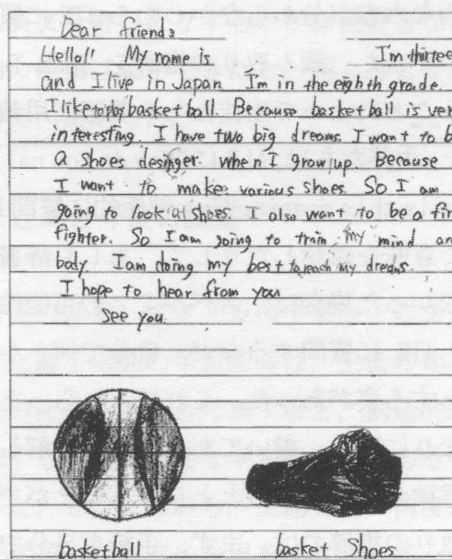 Dear friends
Hello!! My name is I'm thirtee
and I live in Japan I'm in the eighth grade.
I like to play basket ball. Because basket ball is ver
interesting. I have two big dreams. I want to b
a shoes desinger. when I grow up. Because
I want to make various shoes So I am
going to look at shoes. I also want to be a fir
fighter. So I am going to train my mind an
body. I am doing my best to reach my dreams.
I hope to hear from you
See you.
basketball basket Shoes